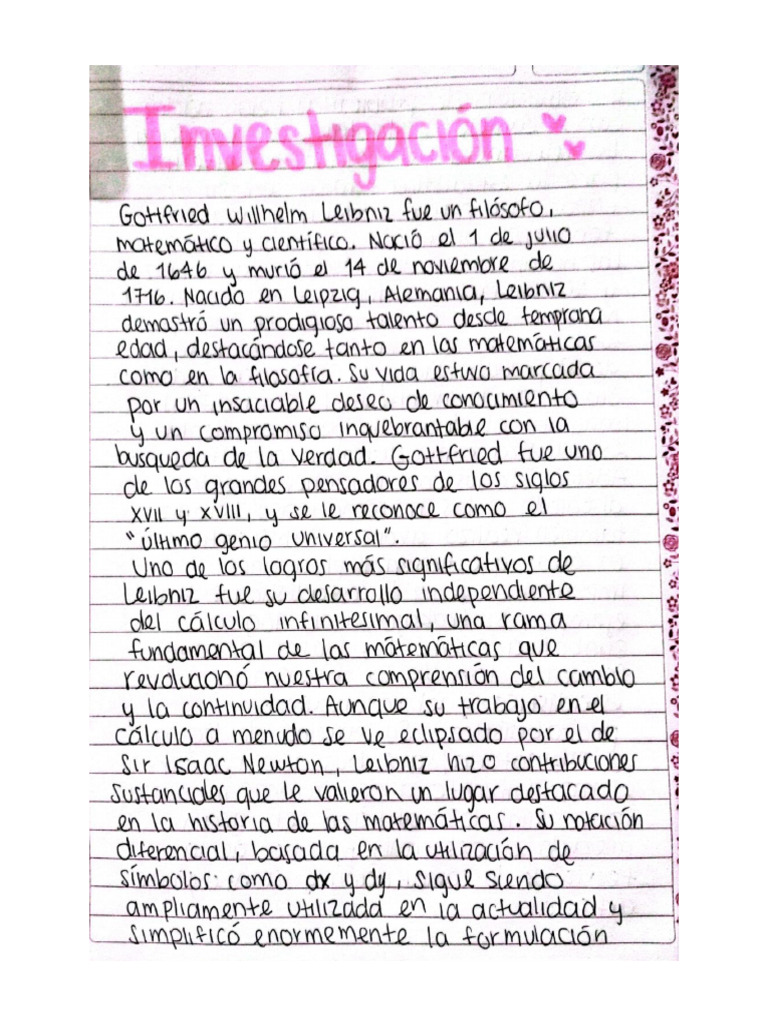 Investigación
Gottfried Willhelm Leibniz fue un filósofo,
matemático y científico. Nació el 1 de julio
de 1646 y murió el 14 de noviembre de
1716. Nacido en Leipzig, Alemania, Leibniz
demostró un prodigioso talento desde temprana
edad, destacándose tanto en las matemáticas
como en la filosofía. Su vida estuvo marcada
por un insaciable deseo de conocimiento
y un compromiso inquebrantable con la
busqueda de la verdad. Gottfried fue uno
de los grandes pensadores de los siglos
XVII y XVIII, y se le reconoce como el
"último genio universal".
Uno de los logros más significativos de
Leibniz fue su desarrollo independiente
del cálculo infinitesimal, una rama
fundamental de las mátemáticas que
revolucionó nuestra comprensión del cambio
y la continuidad. Aunque su trabajo en el
cálculo a menudo se ve eclipsado por el de
Sir Isaac Newton, Leibniz hizo contribuciones
sustanciales que le valieron un lugar destacado
en la historia de las matemáticas. Su notación
diferencial, basada en la utilización de
símbolos como dx y dy, sigue siendo
ampliamente utilizada en la actualidad y
simplificó enormemente la formulación